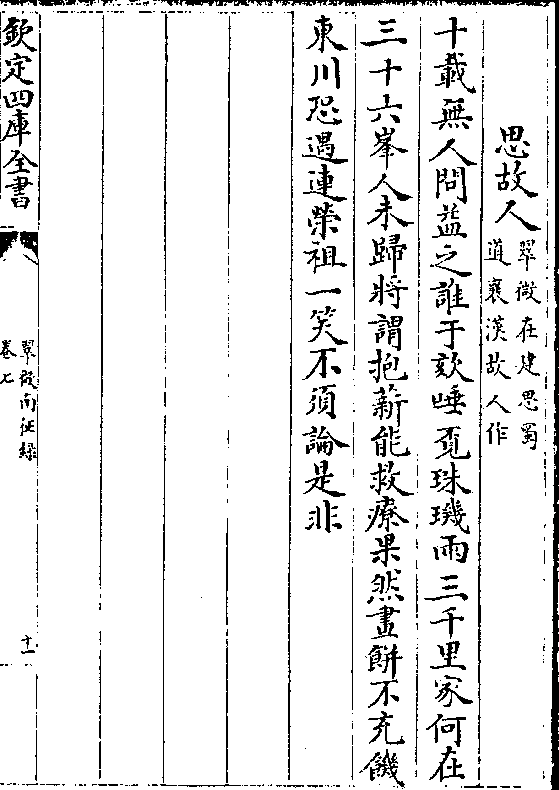 思故人
翠微在建思蜀
道襄漢故人作
十載無人問益之誰于欬唾覔珠璣兩三千里家何在
三十六峯人未歸將謂抱薪能救療果然畫餅不充饑
東川恐遇連榮祖一笑不須論是非
欽定四庫全書
翠微南征録
卷七
十一